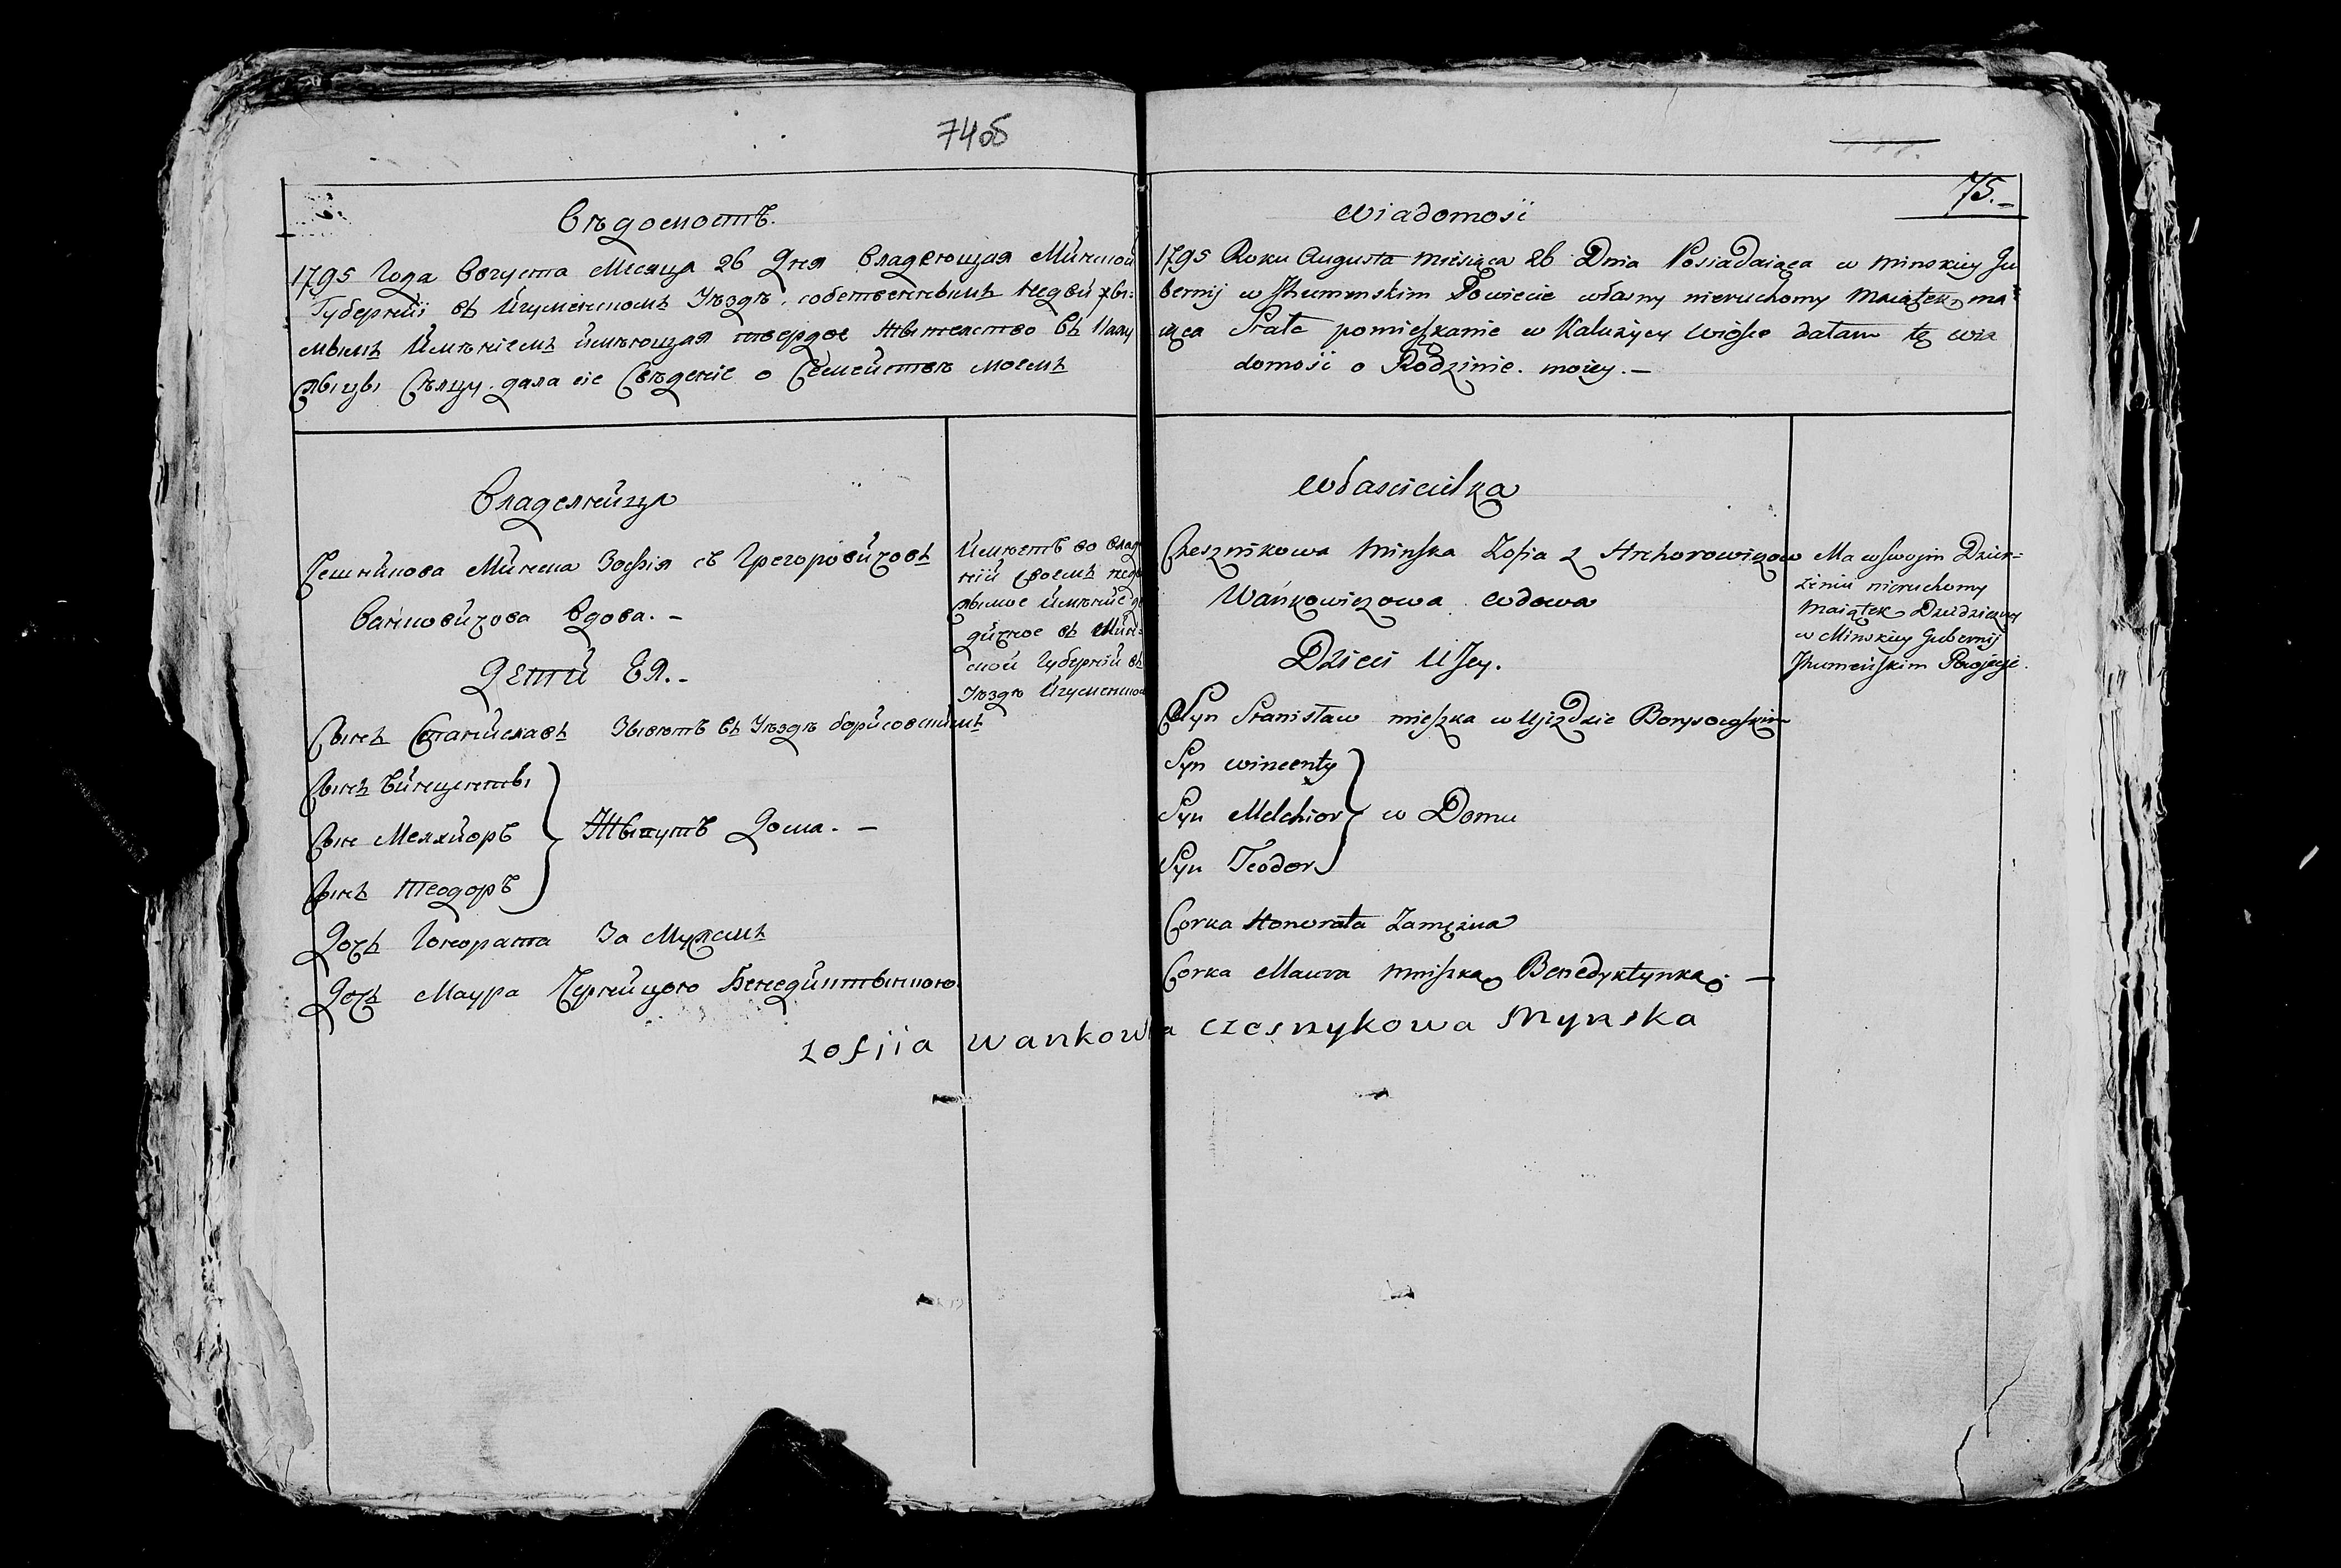 74об
Вѣдомость.
1795 Года Августа Месяца 26 Дня Владеющая Минской
Губерніи въ Игуменскомъ Уѣздѣ собственнымъ недвижы-
мымъ Имѣніемъ имѣющая твердое Жытелство въ Калу
жыцы Сѣлцу дала сіе Свѣденіе о Семействѣ моемъ
Владелница
Чешникова Минска Зофія съ Грегоровичовъ
Ванковичова Вдова. -
Дети Ея. -
Сынъ Станиславъ Жывётъ въ Уѣздѣ Борисовскимъ
Сынъ Винценты
Сын Мелхиоръ
Сынъ Теодоръ
Жывутъ Дома. -
Дочъ Гонората За Мужемъ
Дочъ Маура Черницою Бенедиктынкою
Имѣетъ во влад
ніи своемъ недв
жымое имѣние
дичное въ Мин-
ской Губерніи въ
Уѣздѣ Игуменском
75.-
Wiadomość
1795 Roku Augusta Miesiąca 26 Dnia Posiadaiąca w Minskiey Gu
bernij w Jhumenskim Powiecie własny nieruchomy Maiątek ma
iąca Stałe pomieszkanie w Kalużycy Wiosce dałam tę wia
domość o Rodzinie moiey. -
Włascicielka
Czesznikowa Minska Zofia z Hrehorowiczow
Wańkowiczowa Wdowa
Dzieci Jey.
Syn Stanisław mieszka w Ujezdzie Borysowskim
Syn Wincenty
Syn Melchior
Syn Teodor
w Domu
Corka Honorata Zamężna
Corka Maura mniszka Benedyktynka. -
Ma w swoim Dzier-
żeniu nieruchomy
Maiątek Dziedziczny
w Minskiey Gubernij
Jhumeńskim Powiecie.
zofiia wankow a czesnykowa Mynska